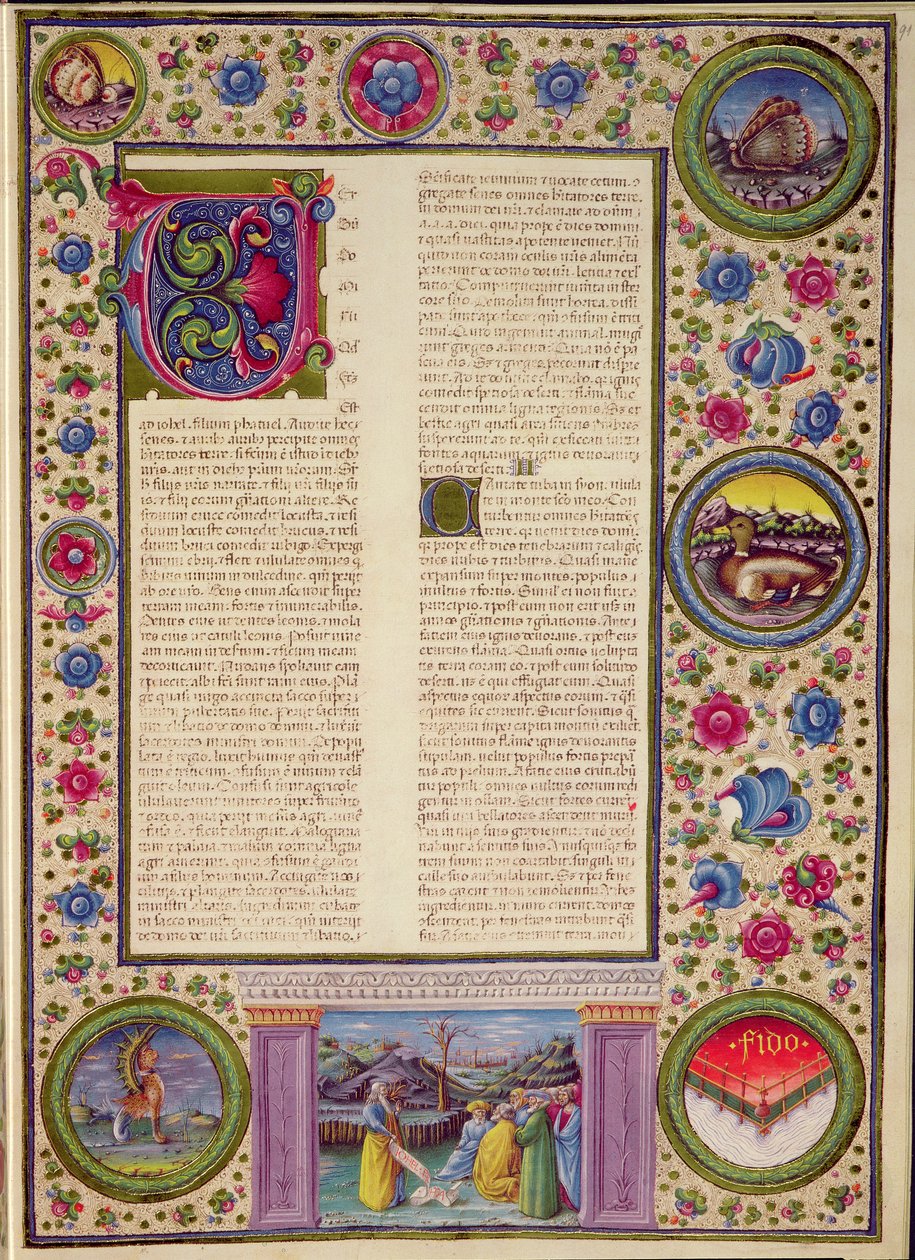 Er
Bū
Do
Mi
Est
ad iohel. filium phatuel. Audite hec
senes. & aurib; percipite omnes
habitatores terre. si factum est istud in dieb;
uris. aut in dieb; patrum urorum. Sup
hoc filiis uris narrate. & filii uri filiis su
is. & filii eorum gñationi altere. Re
siduum eruce comedit locusta. & resi
duum locuste comedit brucus. & resi
duum bruci comedit rubigo. Expergi
scimini ebrii. & flete & ululate omnes q
bibitis uinum in dulcedine. qm̄ perijt
ab ore uro. Gens enim ascendit super
terram meam. fortis & innumerabilis.
Dentes eius ut dentes leonis. & mola
res eius ut catuli leonis. Posuit uine
am meam in desertum. & ficum meam
decorticauit. Nudans spoliauit eam
& proiecit. albi facti sunt rami eius. Plan
ge quasi uirgo accincta sacco super
uirum pubertatis sue. Periit sacrifici
um & libatio de domo domini. & luxerunt
sacerdotes ministri domini. Depopu
lata est regio. luxit humus. qm̄ deuast
tum est triticum. confusum est uinum & elan
guit oleum. Confusi sunt agricole
ululauerunt uinitores super frumento
& ordeo. quia periit messis agri. uinea
confusa est. & ficus elanguit. Malogranat
um & palma. & malum & omnia ligna
agri aruerunt. quia confusum est gaudi
um a filiis hominum. Accingite uos
& plangite sacerdotes. ululate
ministri altaris. ingredimini cubate
in sacco ministri dei mei. qm̄ interijt
de domo dei uri sacrificium & libatio.
Sanctificate ieiunium. uocate cetum. con
gregate senes omnes habitatores terre.
in domum dei uri. & clamate ad dominum
a. a. a. diei. quia prope est dies domini.
& quasi uastitas a potente ueniet. Nun
quid non coram oculis uris alimenta
perierunt de domo dei uri. letitia & exul
tatio. Computruerunt iumenta in ster
core suo. Demolita sunt horrea. dissi
pate sunt apothece. qm̄ confusum est triti
cum. Quid ingemuit animal. mugi
runt greges armenti. Quia non est pa
scua eis. Sed & greges pecorum disperi
erunt. Ad te domine clamabo. quia ignis
comedit speciosa deserti. & flamma suc
cendit omnia ligna regionis. Sed et
bestie agri quasi area sitiens imbres
suspexerunt ad te. qm̄ exsiccati sunt
fontes aquarum. & ignis deuorauit
speciosa deserti. II
Canite tuba in sion. ulula
te in monte sancto meo. Con
turbentur omnes habitatores
terre. quia uenit dies domini.
quia prope est dies tenebrarum & caliginis.
dies nubis & turbinis. Quasi mane
expansum super montes. populus
multus & fortis. Similis ei non fuit a
principio. & post eum non erit usque in
annos gñationis & gñationis. Ante
faciem eius ignis deuorans. & post eum
exurens flamma. Quasi ortus uolupta
tis terra coram eo. & post eum solitudo
deserti. neque est qui effugiat eum. Quasi
aspectus equorum aspectus eorum. & quasi
equites sic current. Sicut sonitus qua
drigarum super capita montium exilient
sicut sonitus flamme ignis deuorantis
stipulam. uelut populus fortis prepara
tus ad prelium. A facie eius cruciabun
tur populi. omnes uultus corum redi
gentur in ollam. Sicut fortes current
quasi uiri bellatores ascendent murum.
Viri in uijs suis gradientur. & non decli
nabunt a semitis suis. Unusquisque fra
trem suum non coartabit. singuli in
calle suo ambulabunt. Sed & per fene
stras cadent & non demolientur. Urbem
ingredientur. in muro current. domos
conscendent. per fenestras intrabunt quasi
fur. A facie eius contremuit terra. moti
IOHEL
·FIDO·